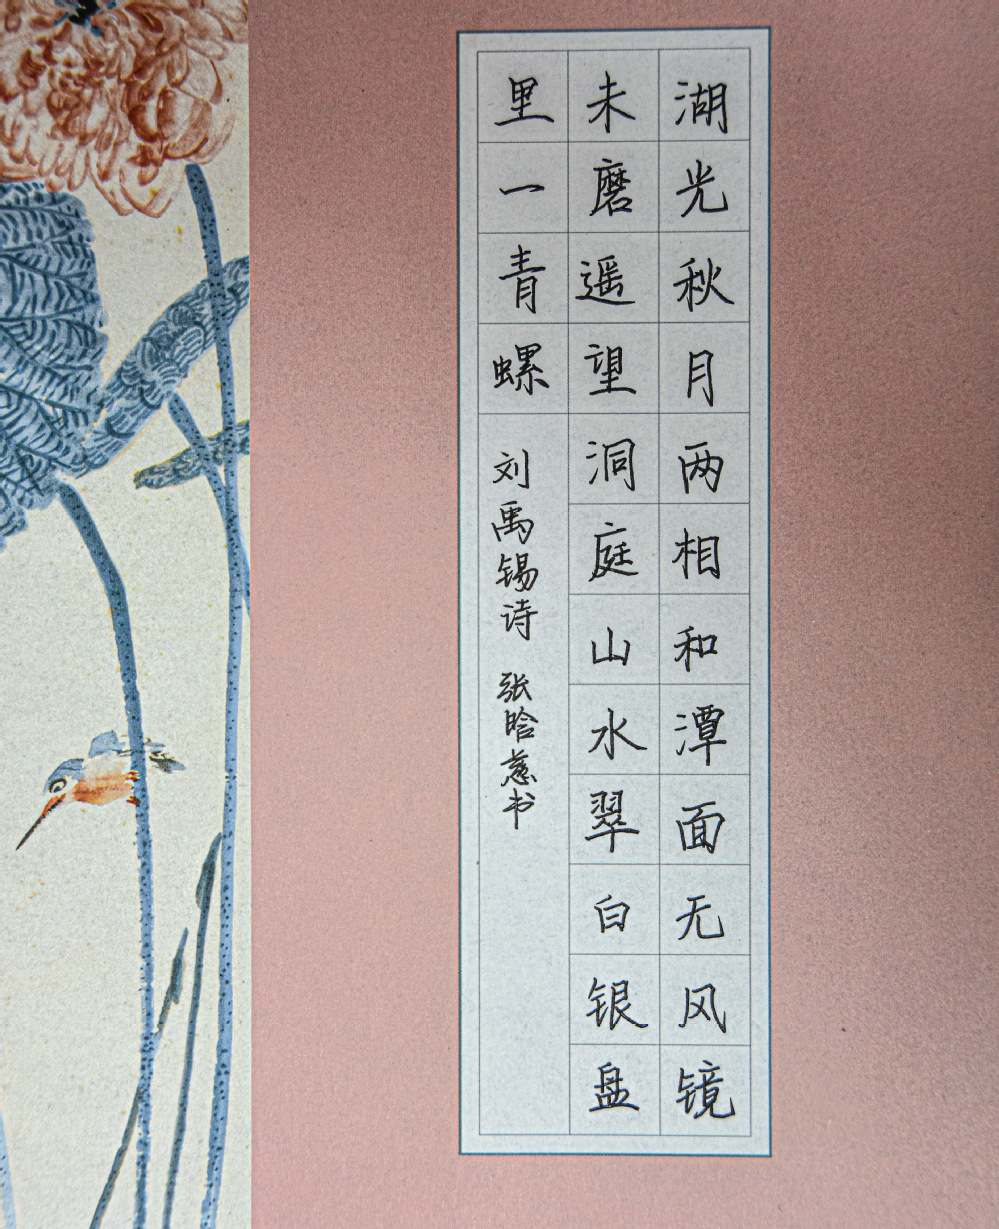 湖光秋月两相和潭面无风镜
未磨遥望洞庭山水翠白银盘
里一青螺
刘禹锡诗 张晗慈书